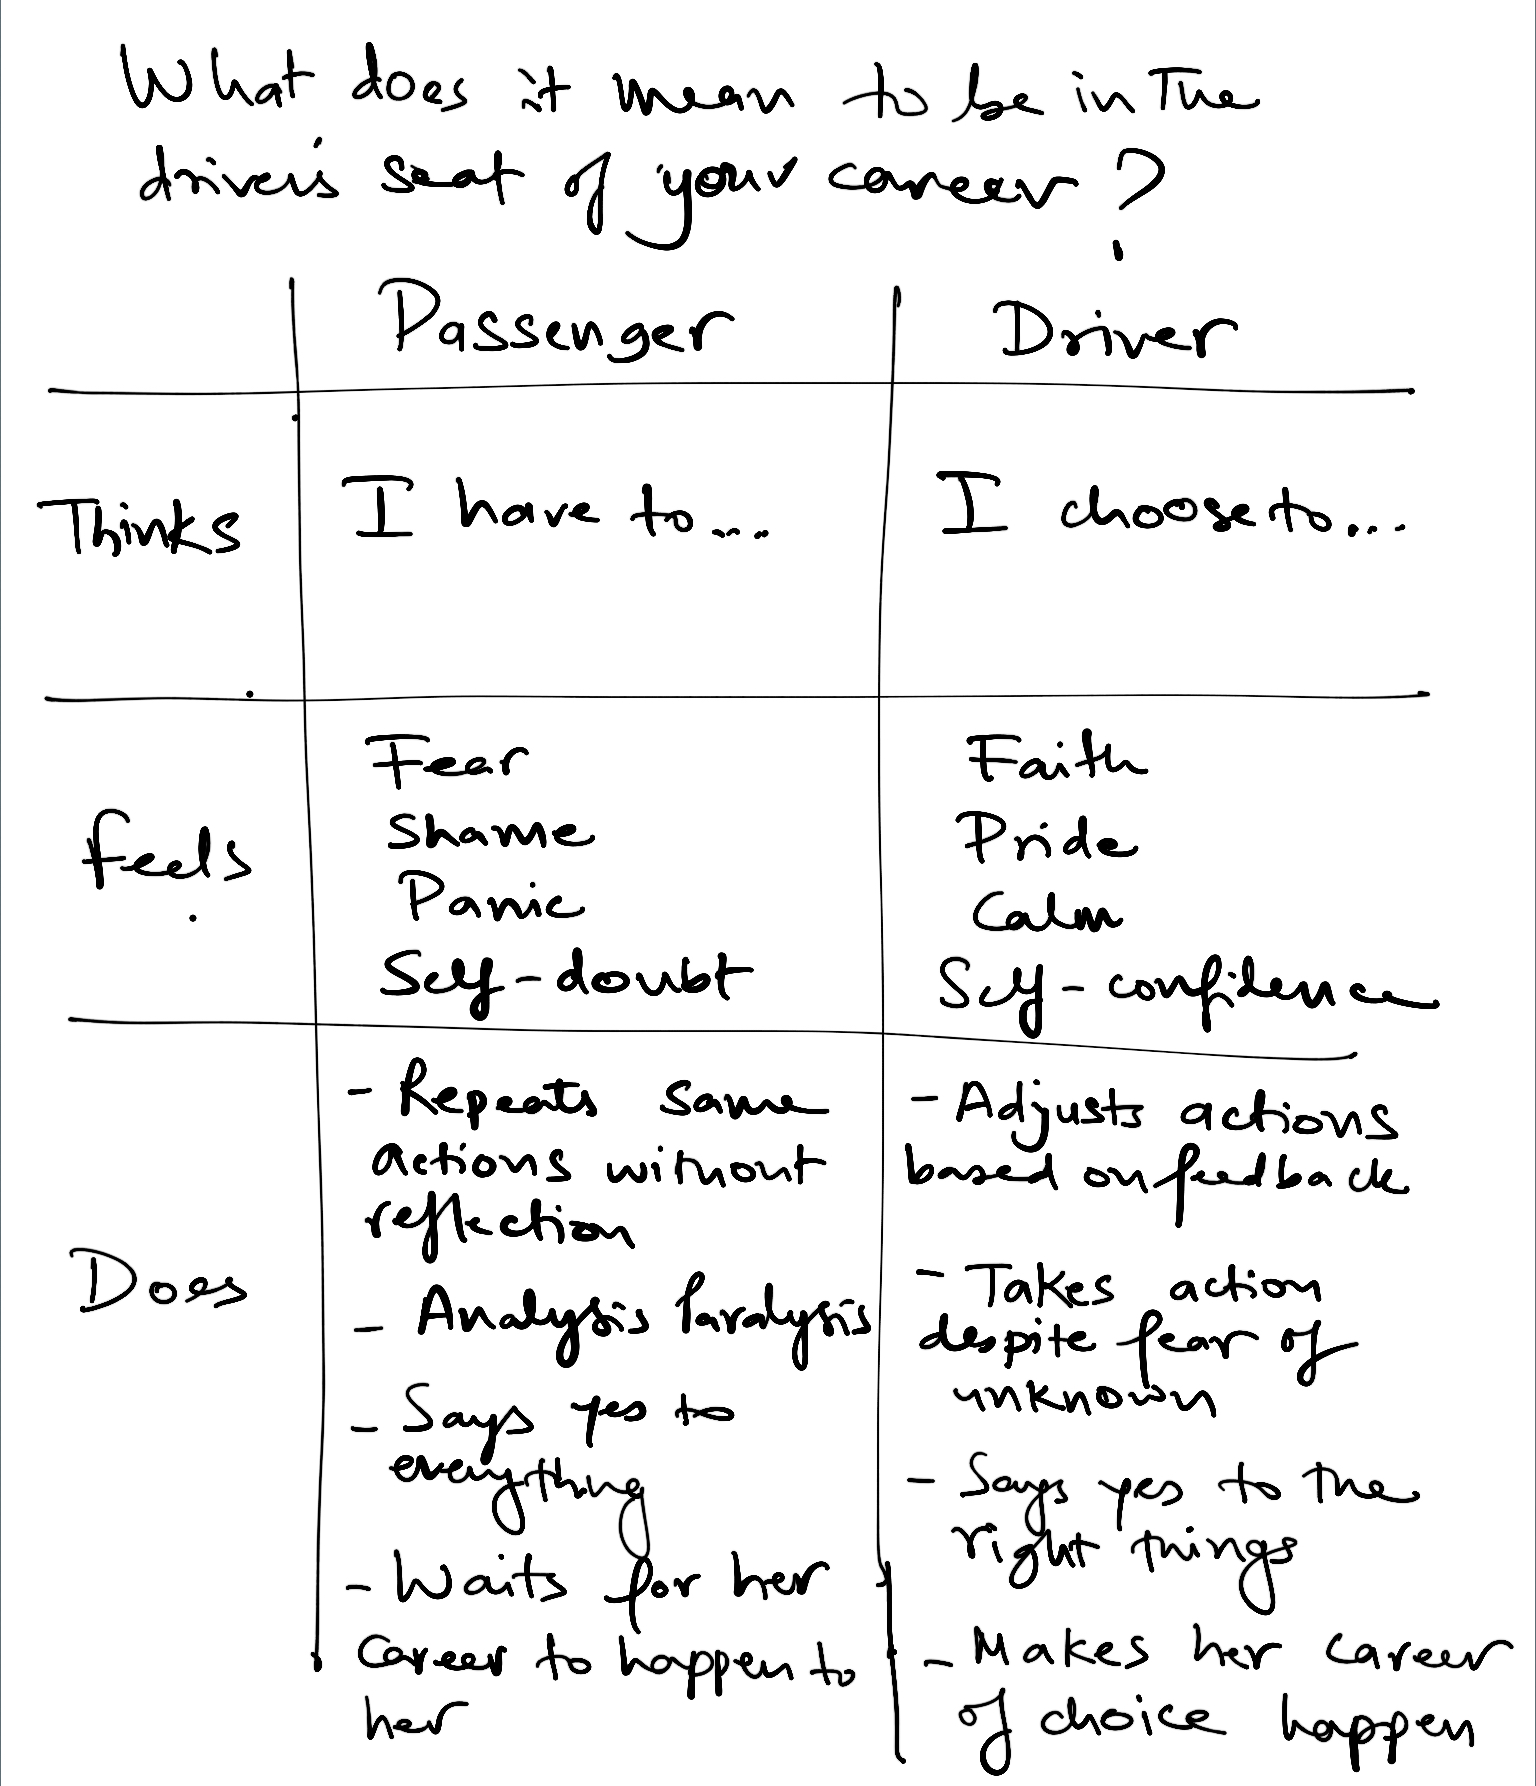 What does it mean to be in The
driver's seat of your career?
Passenger Driver
Thinks I have to... I choose to...
Feels
Fear
Shame
Panic
Self-doubt
Faith
Pride
Calm
Self-confidence
Does
- Repeats same
actions without
reflection
- Analysis Paralysis
- Says yes to
everything
- Waits for her
career to happen to
her
- Adjusts actions
based on feedback
- Takes action
despite fear of
unknown
- Says yes to the
right things
- Makes her career
of choice happen